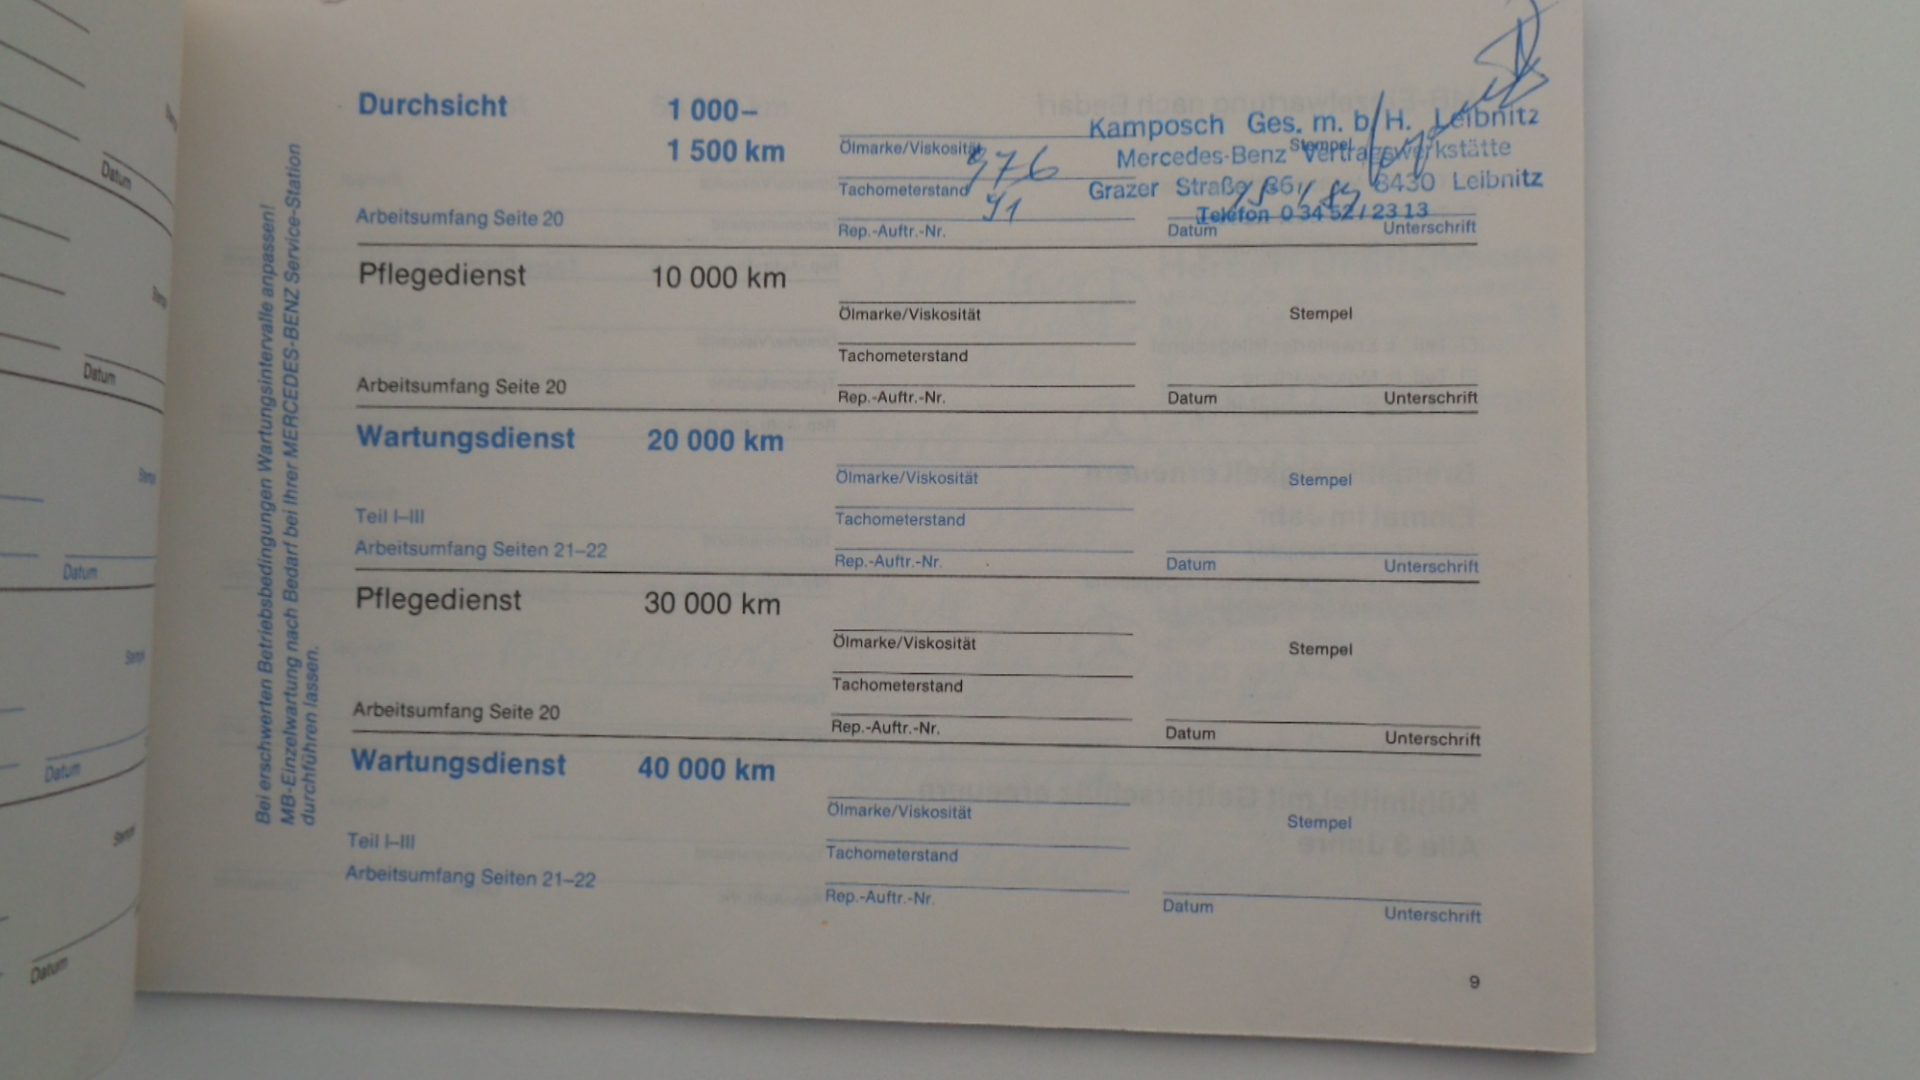 Bei erschwerten Betriebsbedingungen Wartungsintervalle anpassen!
MB-Einzelwartung nach Bedarf bei Ihrer MERCEDES-BENZ Service-Station
durchführen lassen.
Durchsicht 1 000–
1 500 km
Ölmarke/Viskosität
976
Tachometerstand
91
Rep.-Auftr.-Nr.
Arbeitsumfang Seite 20
Kamposch Ges. m. b. H. Leibnitz
Stempel
Mercedes-Benz Vertragswerkstätte
Grazer Straße 86, 8430 Leibnitz
Telefon 0 34 52 / 23 13
Datum Unterschrift
Pflegedienst 10 000 km
Ölmarke/Viskosität Stempel
Tachometerstand
Arbeitsumfang Seite 20
Rep.-Auftr.-Nr. Datum Unterschrift
Wartungsdienst 20 000 km
Ölmarke/Viskosität Stempel
Teil I–III
Tachometerstand
Arbeitsumfang Seiten 21–22
Rep.-Auftr.-Nr. Datum Unterschrift
Pflegedienst 30 000 km
Ölmarke/Viskosität Stempel
Tachometerstand
Arbeitsumfang Seite 20
Rep.-Auftr.-Nr. Datum Unterschrift
Wartungsdienst 40 000 km
Ölmarke/Viskosität Stempel
Teil I–III
Tachometerstand
Arbeitsumfang Seiten 21–22
Rep.-Auftr.-Nr. Datum Unterschrift
9
Datum
Stempel
Datum
Stempel
Datum
Stempel
Datum
Stempel
Datum